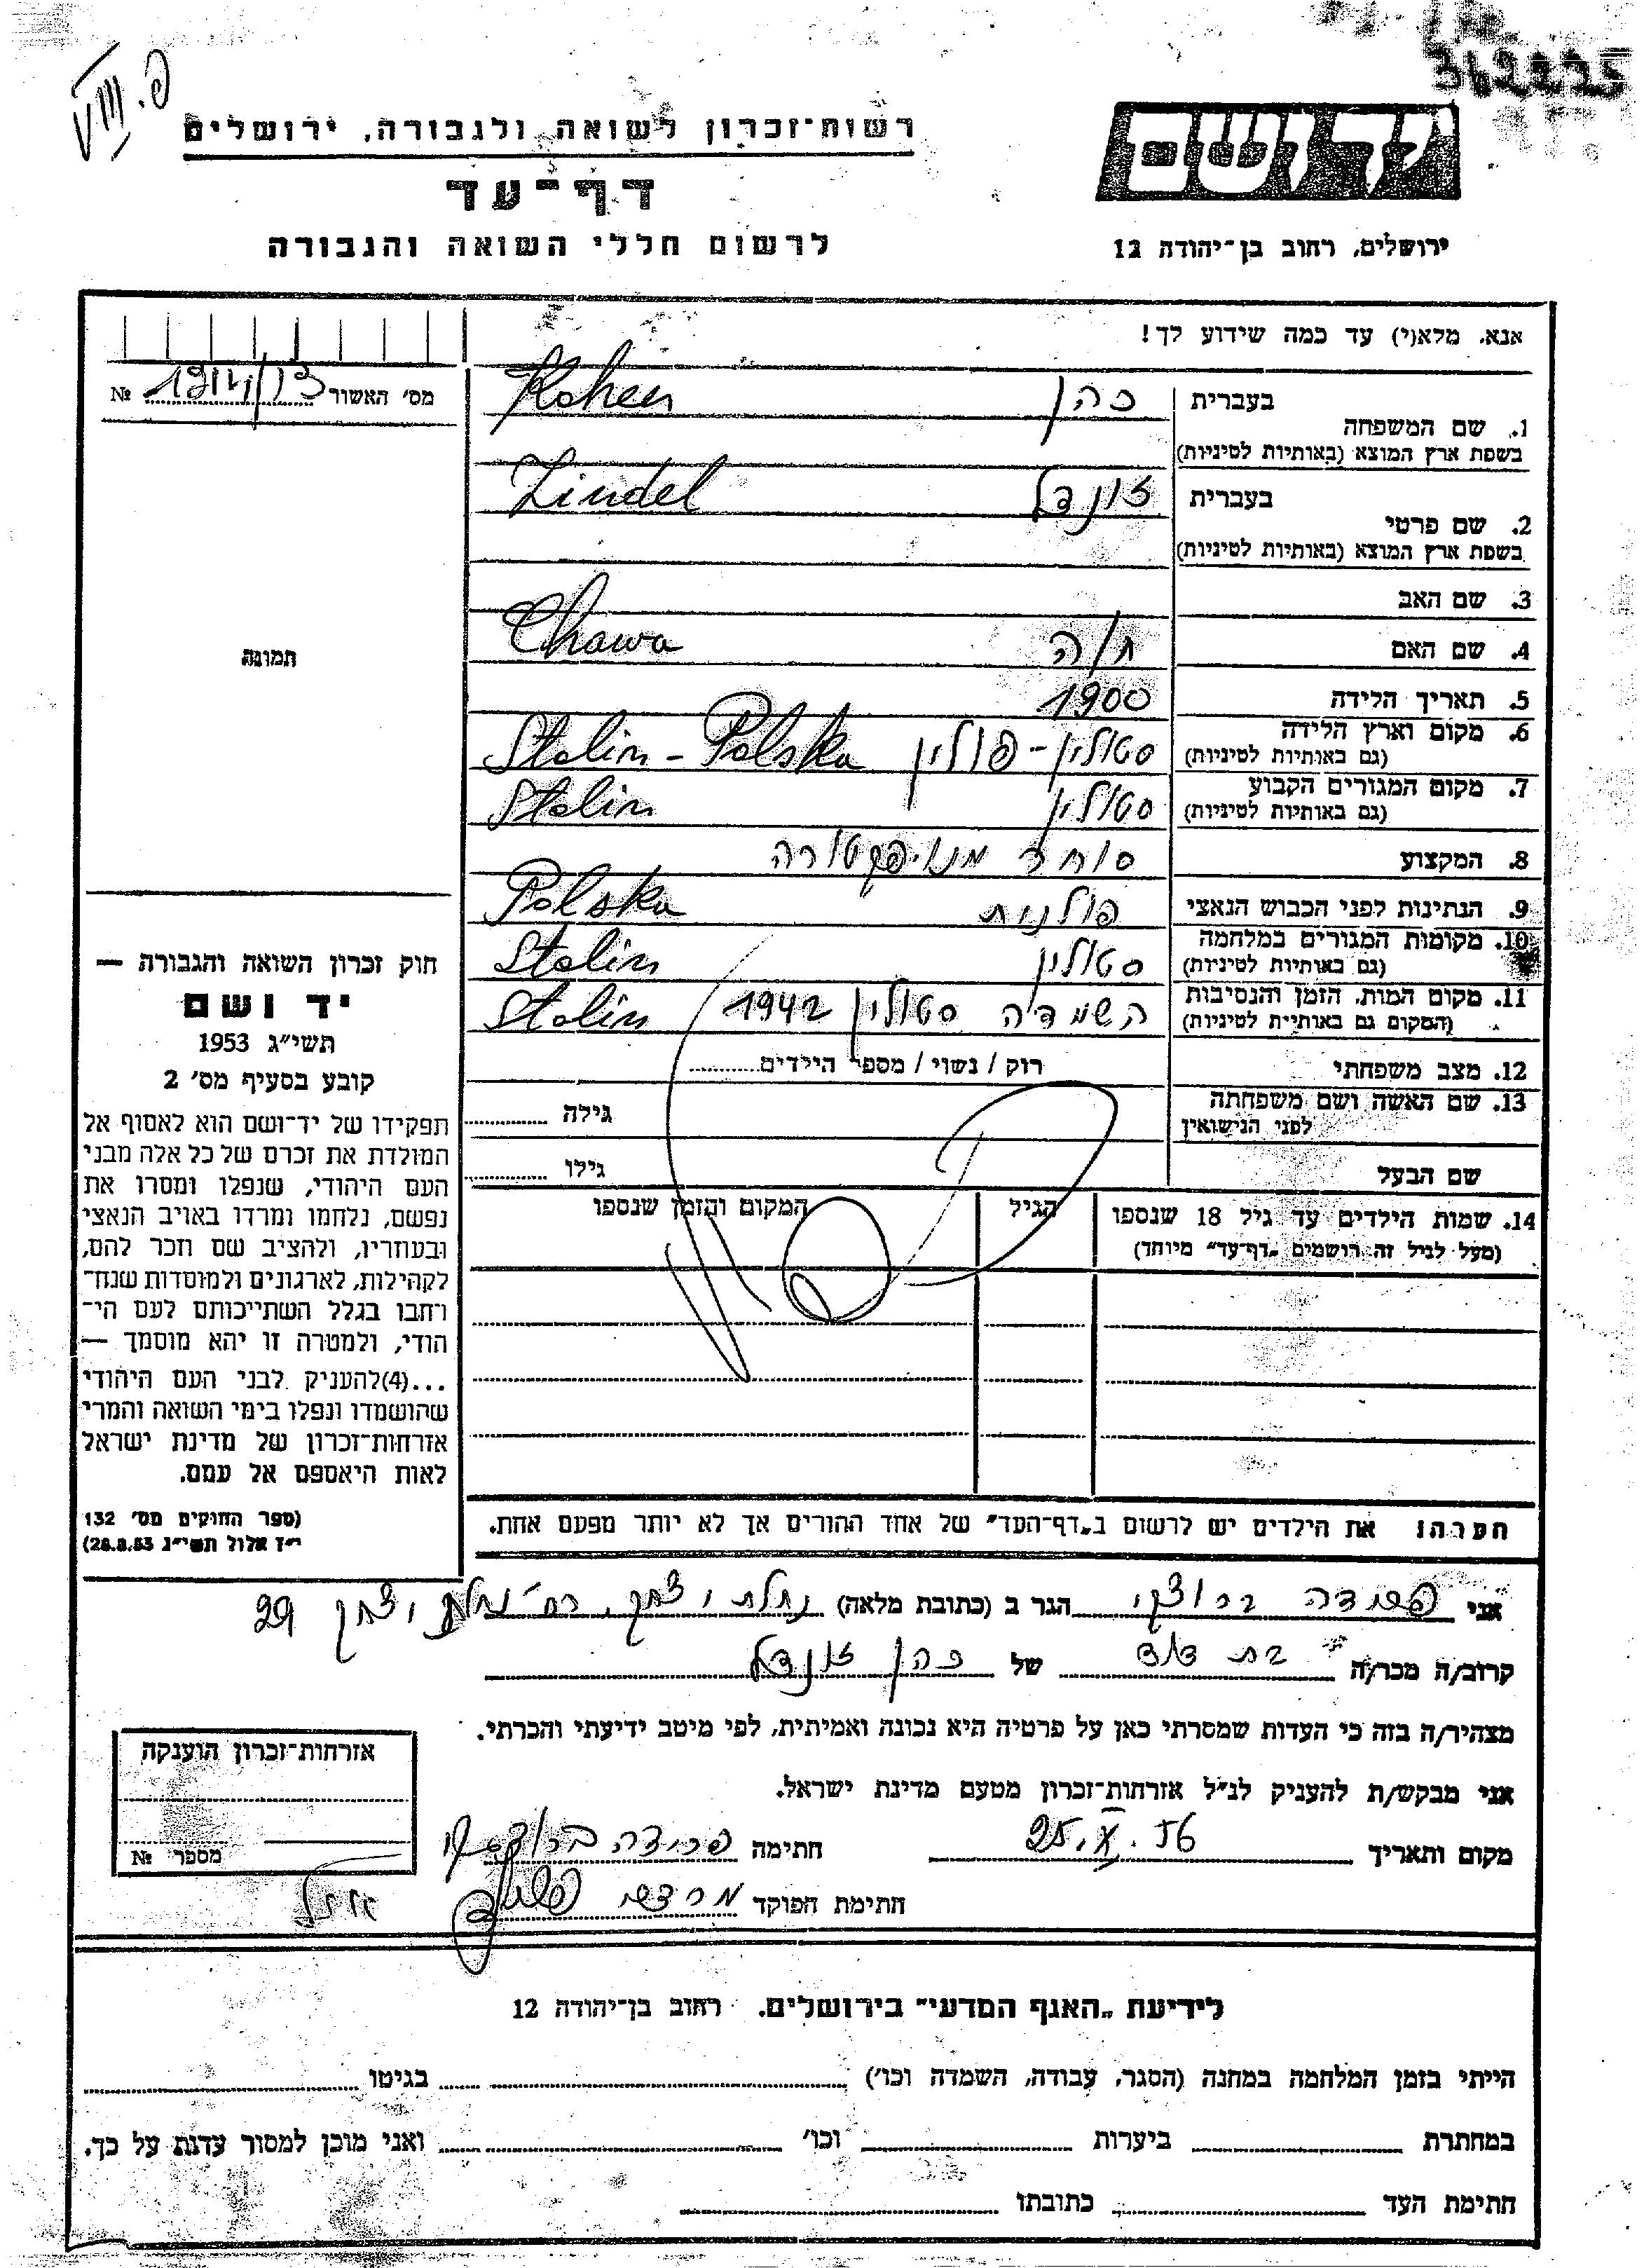 פ. VIII
רשות־זכרון לשואה ולגבורה, ירושלים
דף־עד
לרשום חללי השואה והגבורה
יד ושם
ירושלים, רחוב בן־יהודה 12
אנא, מלא(י) עד כמה שידוע לך!
מס' האשור №
1. שם המשפחה בעברית כהן Kohen
בשפת ארץ המוצא (באותיות לטיניות)
2. שם פרטי בעברית זונדל Zindel
בשפת ארץ המוצא (באותיות לטיניות)
3. שם האב
4. שם האם חוה Chawa
5. תאריך הלידה 1900
6. מקום וארץ הלידה סטולין - פולין Stolin - Polska
(גם באותיות לטיניות)
7. מקום המגורים הקבוע סטולין Stolin
(גם באותיות לטיניות)
8. המקצוע סוחר מנופקטורה
9. הנתינות לפני הכבוש הנאצי פולנית Polska
10. מקומות המגורים במלחמה סטולין Stolin
(גם באותיות לטיניות)
11. מקום המות, הזמן והנסיבות השמדה סטולין 1942 Stolin
(המקום גם באותיות לטיניות)
12. מצב משפחתי רוק / נשוי / מספר הילדים
13. שם האשה ושם משפחתה גילה
לפני הנישואין
שם הבעל גילו
14. שמות הילדים עד גיל 18 שנספו הגיל המקום והזמן שנספו
(מעל לגיל זה רושמים "דף־עד" מיוחד)
הערה! את הילדים יש לרשום ב"דף־העד" של אחד ההורים אך לא יותר מפעם אחת.
תמונה
חוק זכרון השואה והגבורה —
יד ושם
תשי"ג 1953
קובע בסעיף מס' 2
תפקידו של יד־ושם הוא לאסוף אל
המולדת את זכרם של כל אלה מבני
העם היהודי, שנפלו ומסרו את
נפשם, נלחמו ומרדו באויב הנאצי
ובעוזריו, ולהציב שם וזכר להם,
לקהילות, לארגונים ולמוסדות שנח־
רבו בגלל השתייכותם לעם הי־
הודי, ולמטרה זו יהא מוסמך —
...(4) להעניק לבני העם היהודי
שהושמדו ונפלו בימי השואה והמרי
אזרחות־זכרון של מדינת ישראל
לאות היאספם אל עמם.
(ספר החוקים מס' 132
י"ז אלול תשי"ג 28.8.53)
אני פרידה ברודצקי הגר ב (כתובת מלאה) נחלת יצחק, רח' נחלת יצחק 29
קרוב/ה מכר/ה בת דוד של כהן זונדל
מצהיר/ה בזה כי העדות שמסרתי כאן על פרטיה היא נכונה ואמיתית, לפי מיטב ידיעתי והכרתי.
אני מבקש/ת להעניק לנ"ל אזרחות־זכרון מטעם מדינת ישראל.
מקום ותאריך 25.X.56 חתימה פרידה ברודצקי
חתימת הפוקד
אזרחות־זכרון הוענקה
מספר №
לידיעת "האגף המדעי" בירושלים. רחוב בן־יהודה 12
הייתי בזמן המלחמה במחנה (הסגר, עבודה, השמדה וכו') בגיטו
במחתרת ביערות וכו' ואני מוכן למסור עדות על כך.
חתימת העד כתובתו